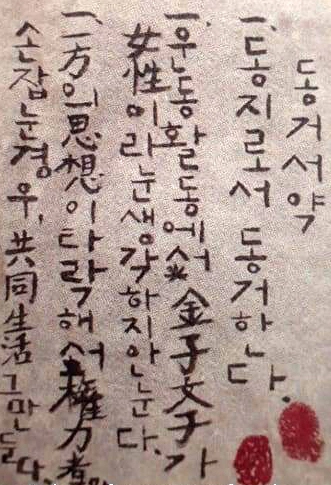 동거서약
一、동지로서 동거한다.
一、운동활동에서 金子文子가
女性이라눈생각하지안눈다.
一、一方의思想이타락해서 權力者
손잡눈경우, 共同生活 그만둔다.